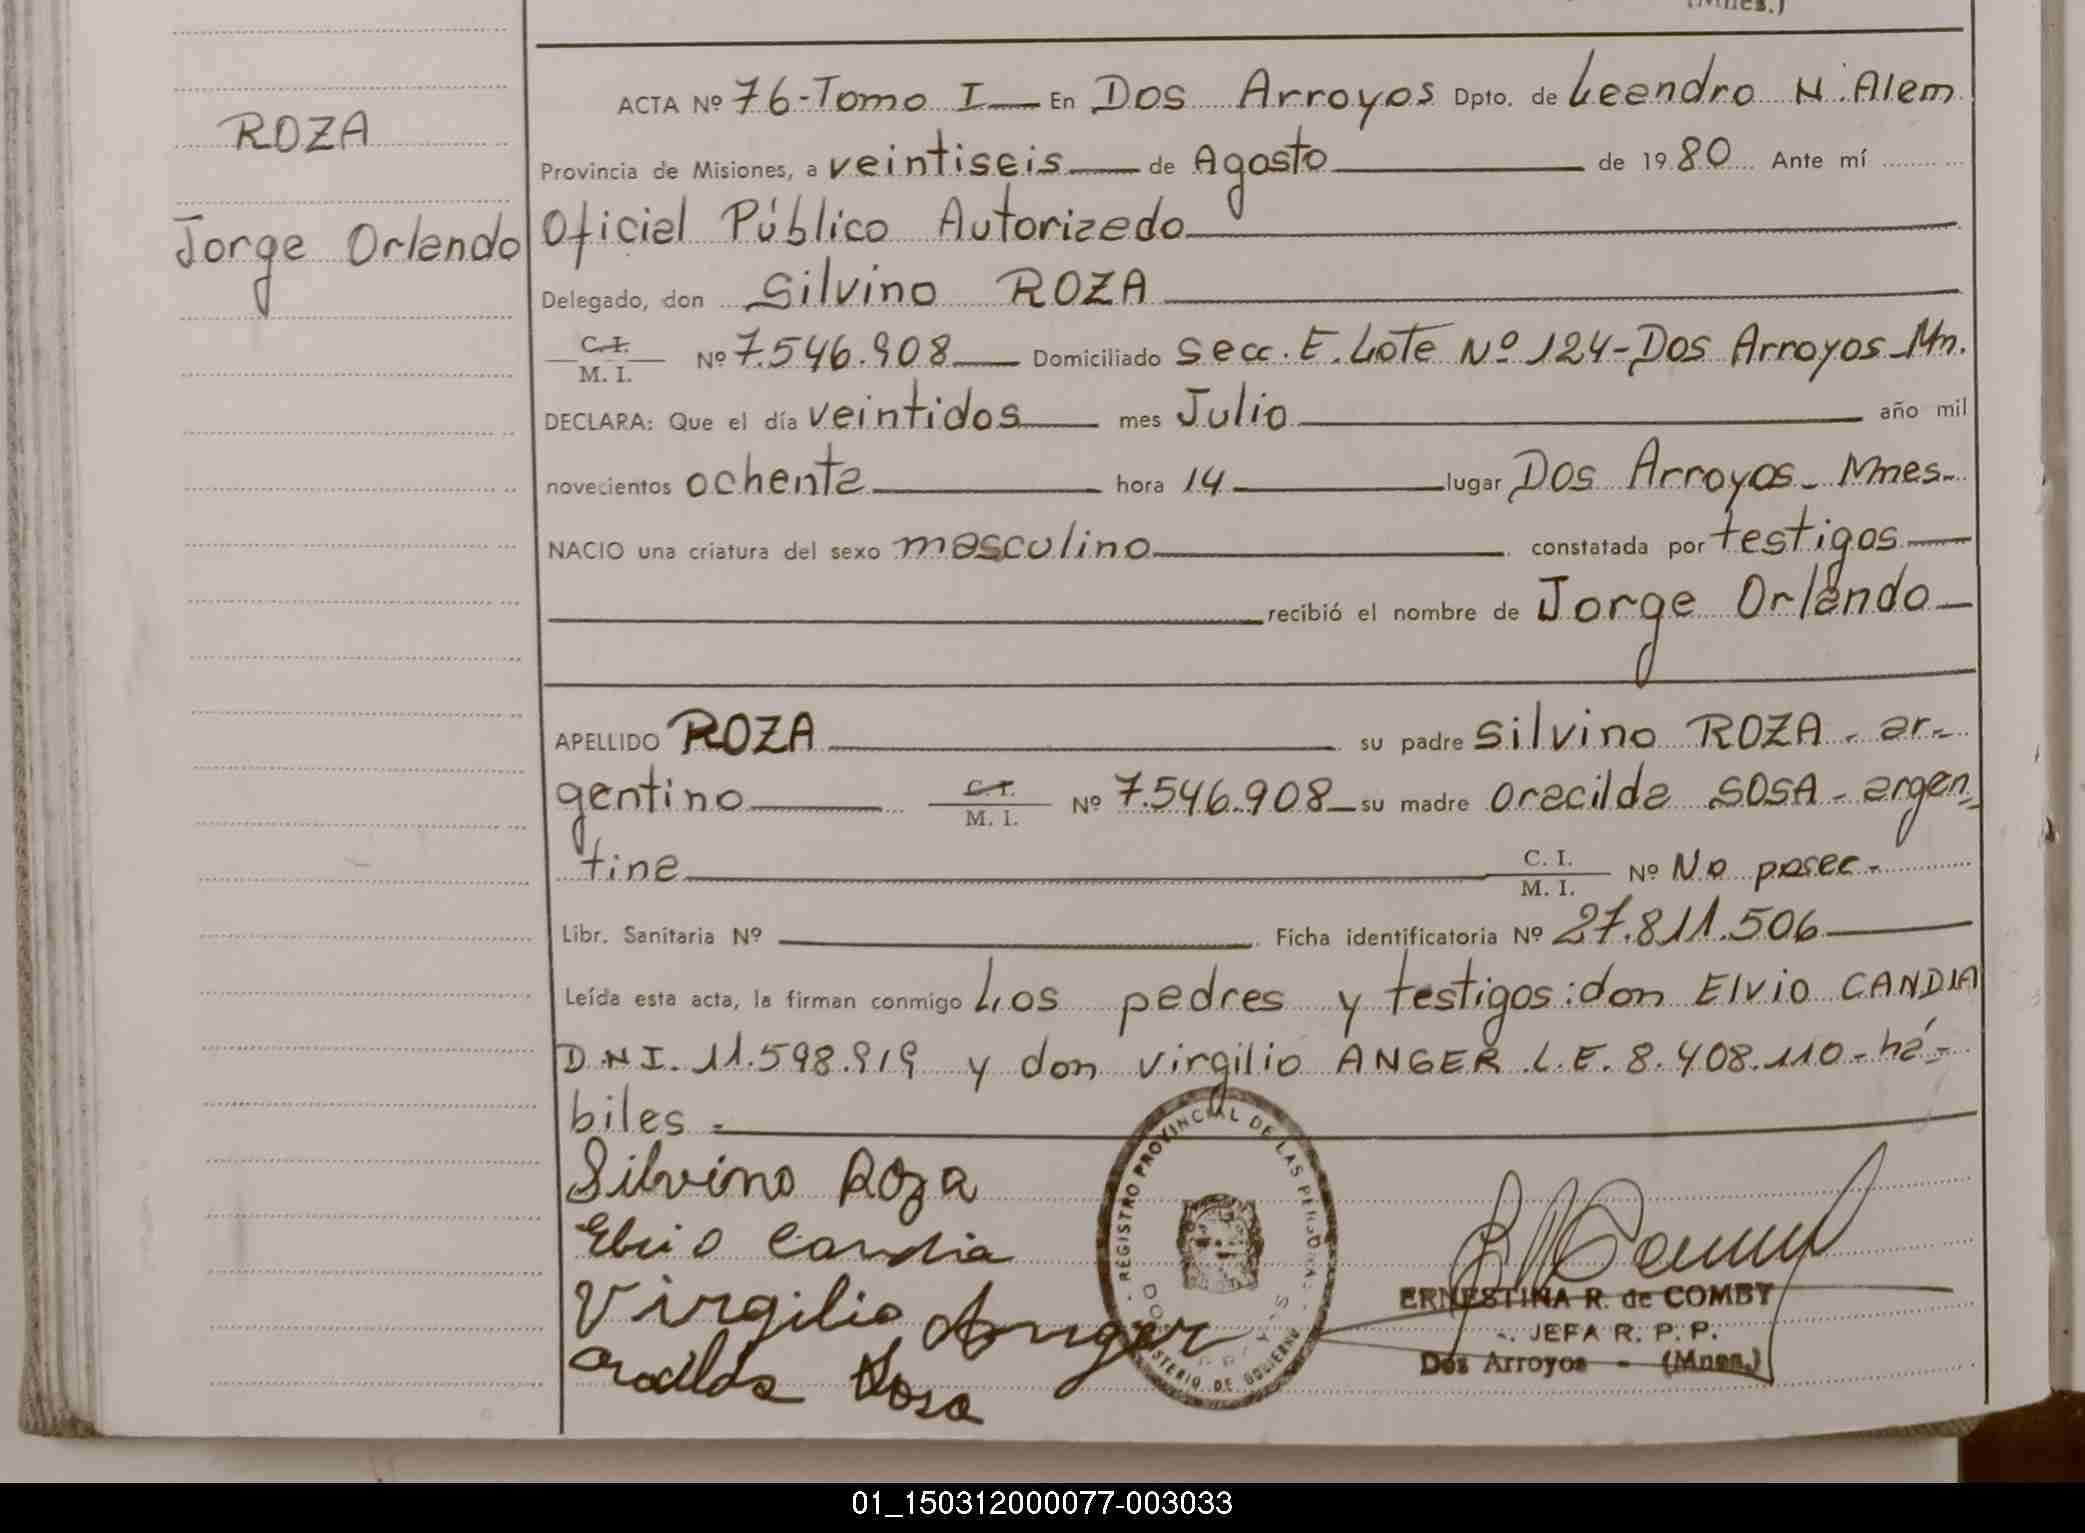 (Mnes.)
ACTA Nº 76-Tomo I — En Dos Arroyos Dpto. de Leendro N. Alem
ROZA
Provincia de Misiones, a veintiseis — de Agosto — de 1980 Ante mí
Jorge Orlendo
Oficiel Público Autorizedo —
Delegado, don Silvino ROZA —
C.I. / M. I. Nº 7.546.908 — Domiciliado Secc. E. Lote Nº 124-Dos Arroyos-Mn.
DECLARA: Que el día veintidos — mes Julio — año mil
novecientos ochente — hora 14 — lugar Dos Arroyos - Mnes-
NACIO una criatura del sexo mesculino — constatada por testigos —
— recibió el nombre de Jorge Orlando —
APELLIDO ROZA — su padre Silvino ROZA - ar-
gentino — C.I. / M. I. Nº 7.546.908 — su madre Orecilde SOSA - ergen-
tine — C. I. / M. I. Nº No posee -
Libr. Sanitaria Nº — Ficha identificatoria Nº 27.811.506 —
Leída esta acta, la firman conmigo Los pedres y testigos: don Elvio CANDIA
D.N.I. 11.598.919 y don Virgilio ANGER L.E. 8.408.110 - há-
biles - —
Silvino Roza
Elvio Candia
Virgilio Anger
Oracilda Sosa
REGISTRO PROVINCIAL DE LAS PERSONAS
MINISTERIO DE GOBIERNO
ERNESTINA R. de COMBY
JEFA R. P. P.
Dos Arroyos - (Mnes.)
01_150312000077-003033